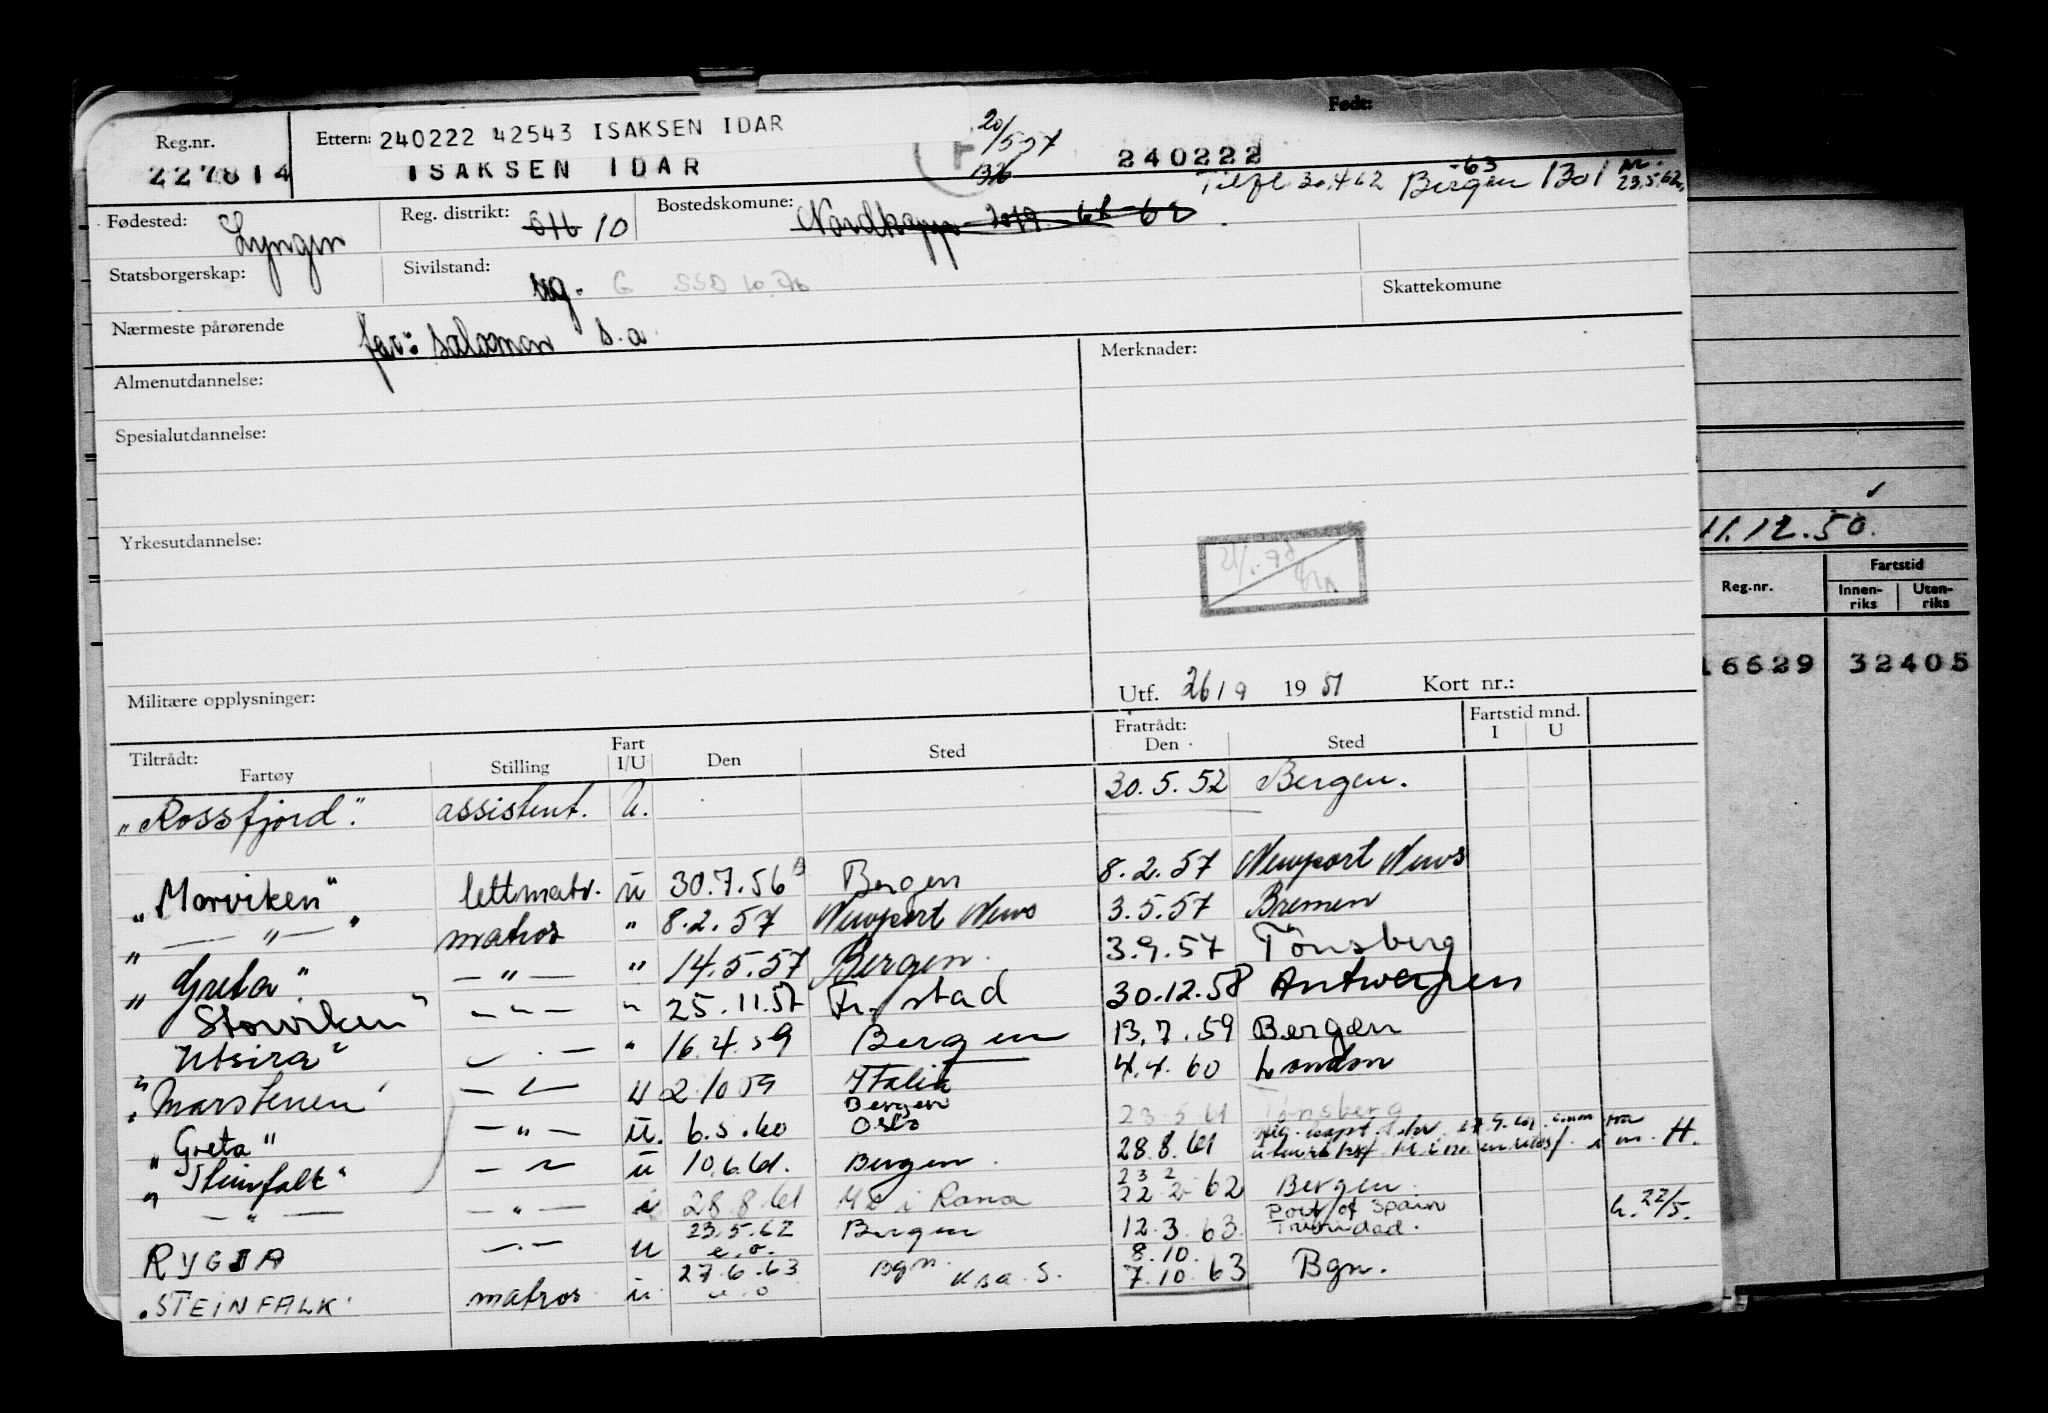 Født:
Reg.nr.
227814
Ettern: 240222 42543 ISAKSEN IDAR
ISAKSEN IDAR
20/5 57
240222
Tilfl 30.4 62 Bergen -63 1301
23.5.62
Fødested: Lyngen
Reg. distrikt: 10
Bostedskomune: Nordkapp 2019
Statsborgerskap:
Sivilstand: ug. G SSD 10.76
Skattekomune
Nærmeste pårørende far: Salomon s.a
Almenutdannelse:
Merknader:
Spesialutdannelse:
Yrkesutdannelse:
Militære opplysninger:
Utf. 26/9 1951 Kort nr.:
Tiltrådt: Fartøy Stilling Fart I/U Den Sted Fratrådt: Den Sted Fartstid mnd. I U
"Rossfjord". assistent. U. 30.5.52 Bergen.
"Morviken" lettmatr. u 30.7.56 Bergen 8.2.57 Newport News
" — " — " matros " 8.2.57 Newport News 3.5.57 Bremen
"Greta" — " — " 14.5.57 Bergen. 3.9.57 Tønsberg
Storviken" — " — " 25.11.57 Fr. stad 30.12.58 Antwerpen
Utsira" — " 16.4.59 Bergen 13.7.59 Bergen
"Marstenen" — " — u 2.10 59 Italia 4.4.60 London
"Greta" — " — u. 6.5.60 Bergen Oslo 23 5 61 Tønsberg
"Steinfalk" — " — u 10.6.61. Bergen 28.8.61
— " — — " — i 28 8 61 Mo i Rana 23 2 22 2 62 Bergen
RYGJA — " — u 23.5.62 e.o. Bergen 12.3.63. Port of Spain Trinidad. h. 22/5.
"STEINFALK" matros u 27.6.63 e.o Bgn. 8.10. 7.10.63 Bgn.
11.12.50.
Reg.nr. Fartstid
Innen-riks Uten-riks
16629 32405